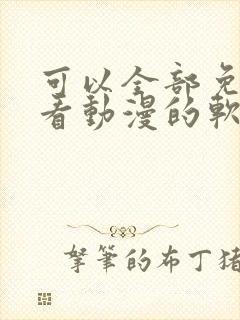 可以全部免
看動漫的軟
拏筆的布丁猪